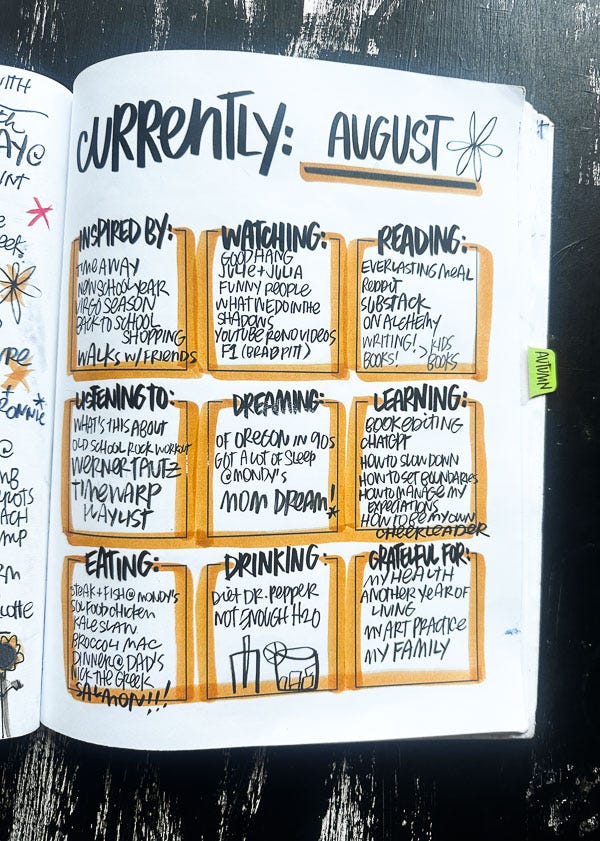 CURRENTLY: AUGUST
INSPIRED BY:
TIME AWAY
NEW SCHOOL YEAR
VIRGO SEASON
BACK TO SCHOOL
SHOPPING
WALKS W/ FRIENDS
WATCHING:
GOOD HANG
JULIE + JULIA
FUNNY PEOPLE
WHAT WE DO IN THE
SHADOWS
YOUTUBE RENO VIDEOS
F1 (BRAD PITT)
READING:
EVERLASTING MEAL
REDDIT
SUBSTACK
ON ALCHEMY
WRITING! > KIDS
BOOKS! BOOKS
LISTENING TO:
WHAT'S THIS ABOUT
OLD SCHOOL ROCK WORKOUT
WERNER TAUTZ
TIMEWARP
PLAYLIST
DREAMING:
OF OREGON IN 90s
GOT A LOT OF SLEEP
@MONDY'S
MOM DREAM!
LEARNING:
BOOK EDITING
CHATGPT
HOW TO SLOW DOWN
HOW TO SET BOUNDARIES
HOW TO MANAGE MY
EXPECTATIONS
HOW TO BE MY OWN
CHEERLEADER
EATING:
STEAK + FISH @ MONDY'S
SOUL FOOD CHICKEN
KALE SLAW
BROCCOLI MAC
DINNER @ DAD'S
NICK THE GREEK
SALMON!!!
DRINKING:
DIET DR. PEPPER
NOT ENOUGH H2O
GRATEFUL FOR:
MY HEALTH
ANOTHER YEAR OF
LIVING
MY ART PRACTICE
MY FAMILY
AUTUMN